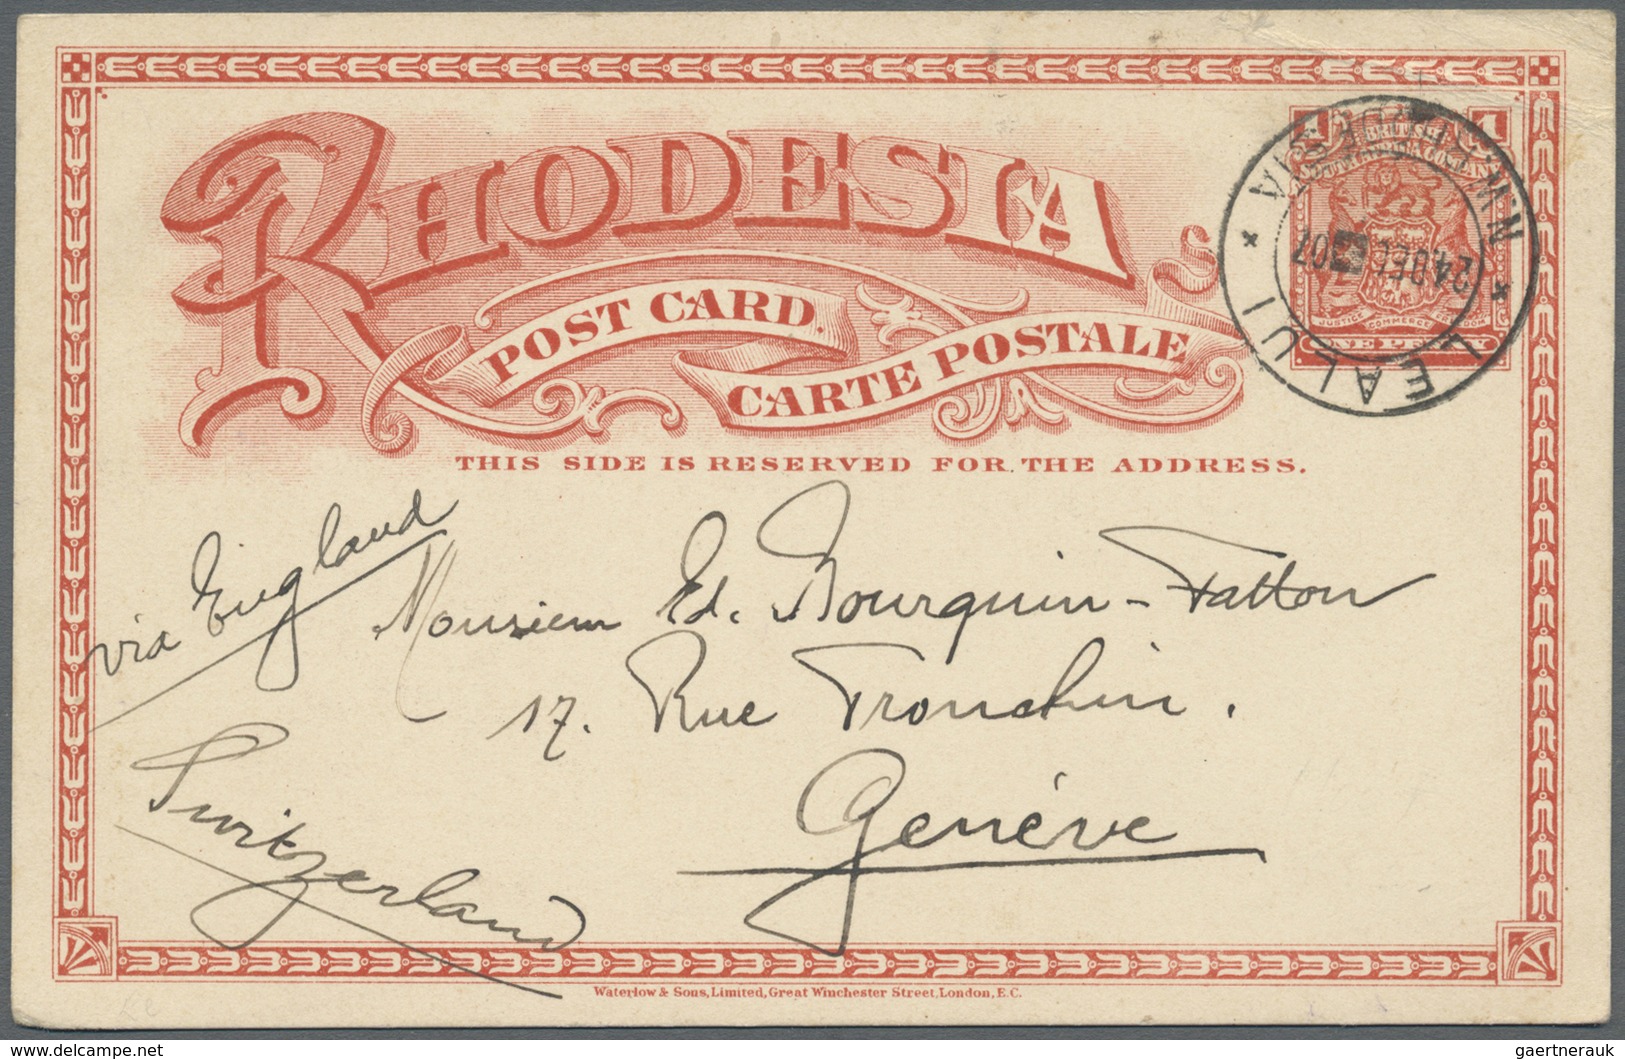 RHODESIA
POST CARD.
CARTE POSTALE
THIS SIDE IS RESERVED FOR THE ADDRESS.
1 1
BRITISH
JUSTICE COMMERCE FREEDOM
ONE PENNY
LEALUI
24 DEC 07
via England
Monsieur Ed. Bourquin-Fatton
17. Rue Tronchin.
Genève
Switzerland
Waterlow & Sons, Limited, Great Winchester Street, London, E.C.
www.delcampe.net
gaertnerauk